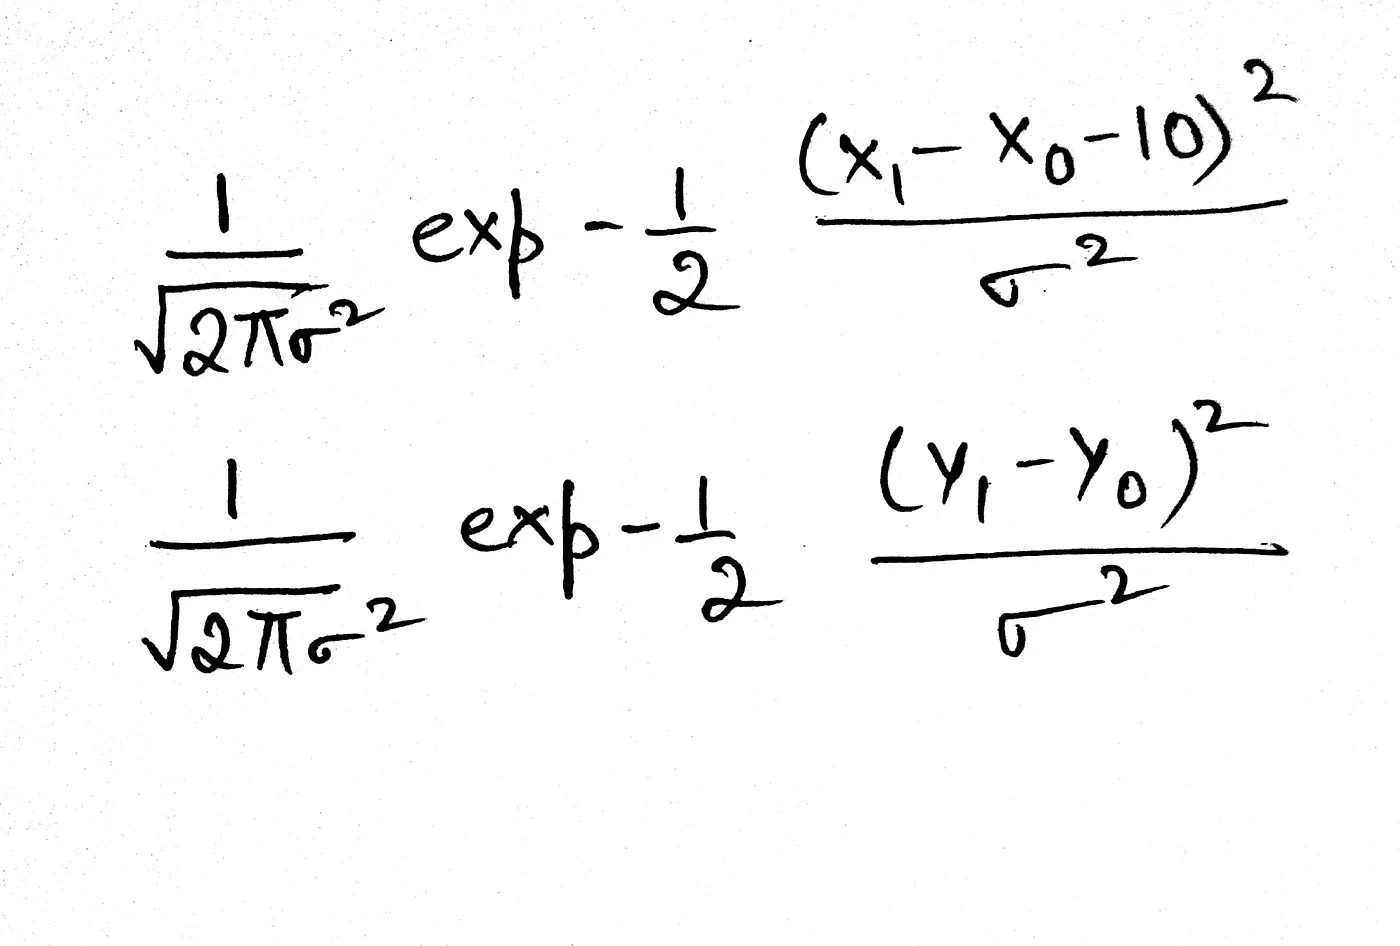 \frac{1}{\sqrt{2\pi\sigma^2}} exp -\frac{1}{2} \frac{(x_1 - x_0 - 10)^2}{\sigma^2}
\frac{1}{\sqrt{2\pi\sigma^2}} exp -\frac{1}{2} \frac{(y_1 - y_0)^2}{\sigma^2}